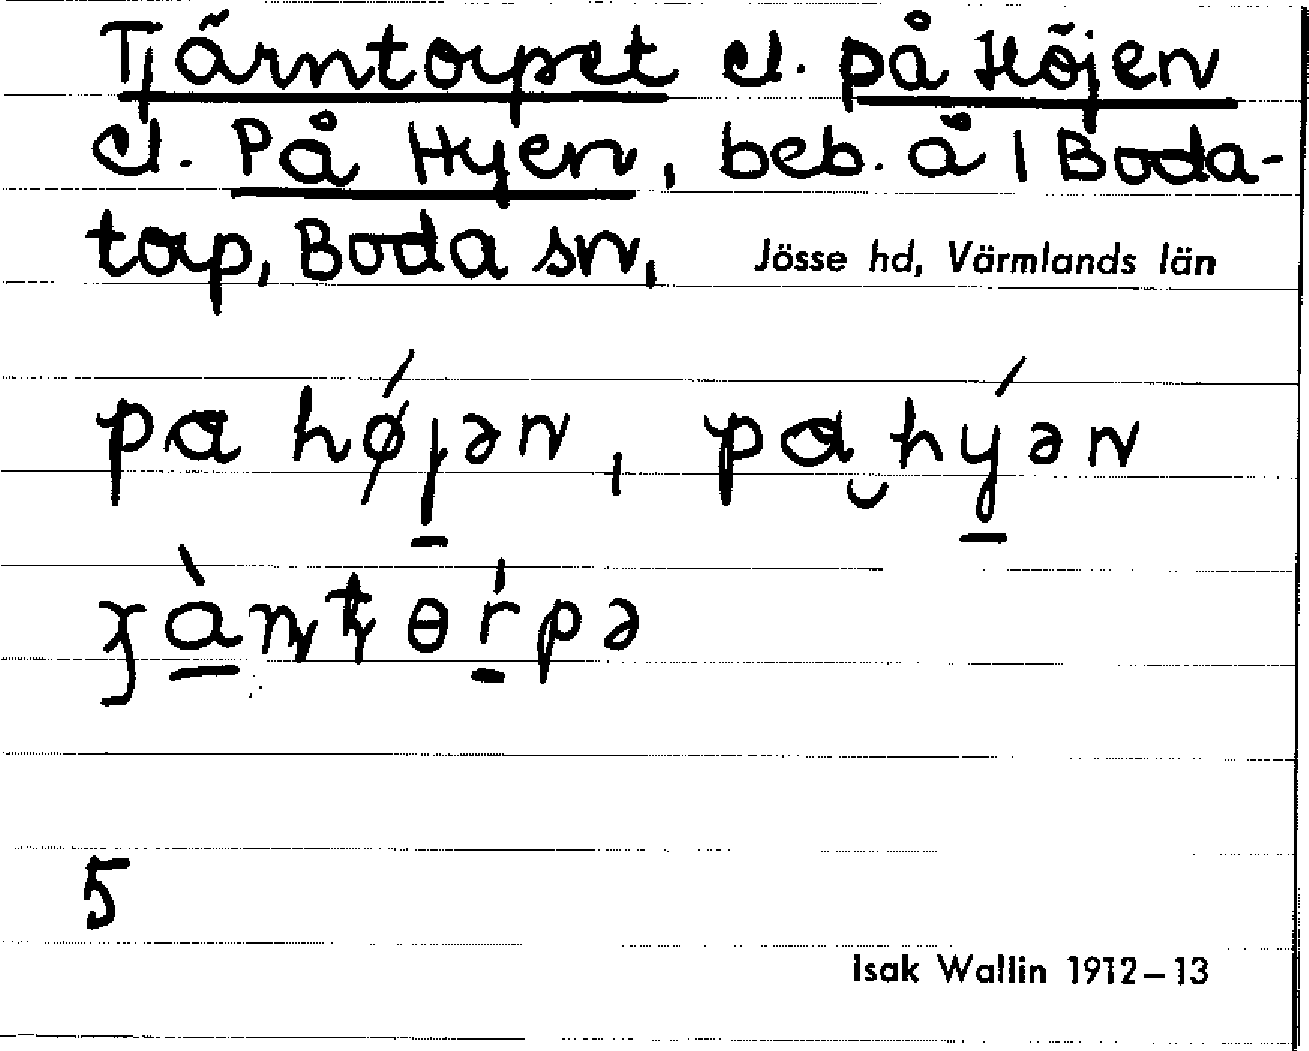 Tjärntorpet el. på Höjen
el. På Hyen, beb. å 1 Boda-
torp, Boda sn, Jösse hd, Värmlands län
pa højən, pa hyən
5
Isak Wallin 1912–13